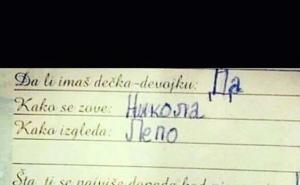 Da li imaš dečka-devojku: Да
Kako se zove: Никола
Kako izgleda: Лепо
Šta ti se najviše dopada kod